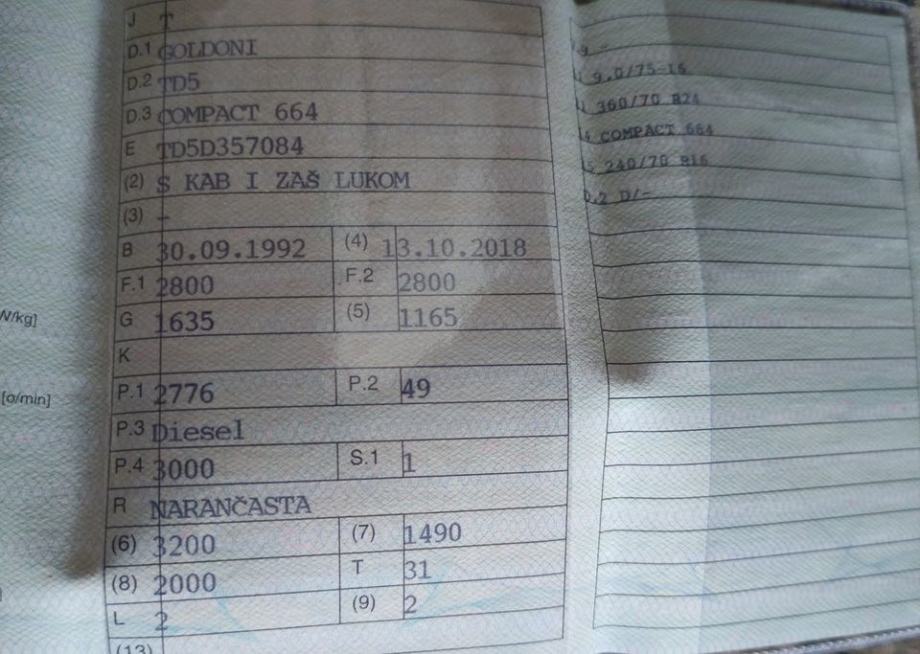 J T
D.1 GOLDONI
D.2 TD5
D.3 COMPACT 664
E TD5D357084
(2) S KAB I ZAŠ LUKOM
(3) -
B 30.09.1992 (4) 13.10.2018
F.1 2800 F.2 2800
G 1635 (5) 1165
N/kg]
K
P.1 2776 P.2 49
[o/min]
P.3 Diesel
P.4 3000 S.1 1
R NARANČASTA
(6) 3200 (7) 1490
(8) 2000 T 31
L 2 (9) 2
(13)
9 -
9.0/75-16
360/70 R24
4 COMPACT 664
5 240/70 R16
0.2 D/-